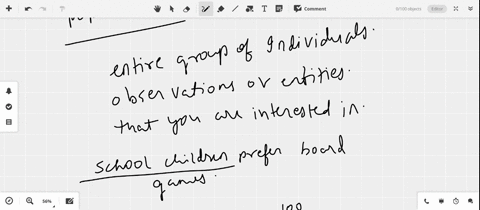 Comment
0/100 objects
Editor
entire group of Individuals.
observations or entities.
that you are interested in.
school children prefer board
games.
56%